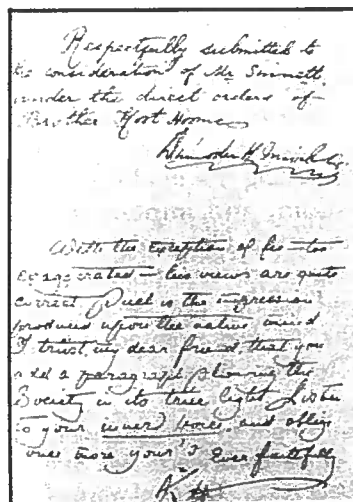 Respectfully submitted to
the consideration of Mr Sinnett.
under the direct orders of
Brother Koot Hoomi
With the exception of fee — too
exagerated — his views are quite
correct. Such is the impression
produced upon the native mind
I trust, my dear friend, that you
add a paragraph showing the
Society in its true light. Listen
to your inner voice, and oblige
once more your's Ever faithfully
K H